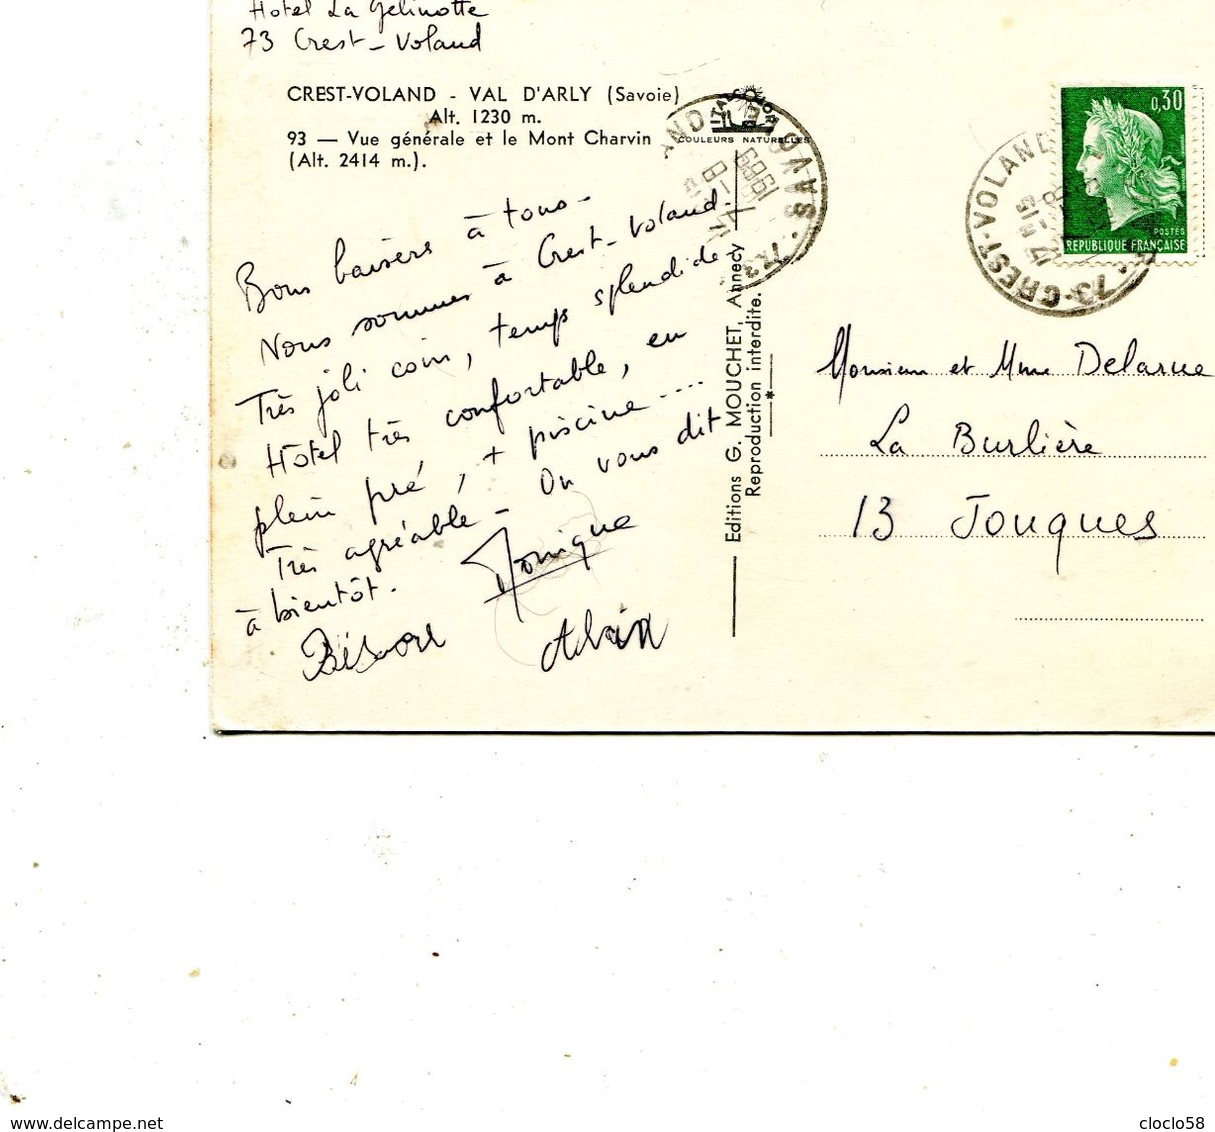 Hotel La Gelinotte
73 Crest-Voland
CREST-VOLAND - VAL D'ARLY (Savoie)
Alt. 1230 m.
93 — Vue générale et le Mont Charvin
(Alt. 2414 m.).
COULEURS NATURELLES
Bons baisers à tous -
Nous sommes à Crest-Voland.
Très joli coin, temps splendide
Hôtel très confortable, en
plein pré, + piscine ....
Très agréable - On vous dit
à bientôt.
Monique
Alain
Editions G. MOUCHET, Annecy
Reproduction interdite.
0,30
POSTES
REPUBLIQUE FRANÇAISE
73-CREST-VOLAND
Monsieur et Mme Delarue
La Burlière
13 Jouques
www.delcampe.net
cloclo58